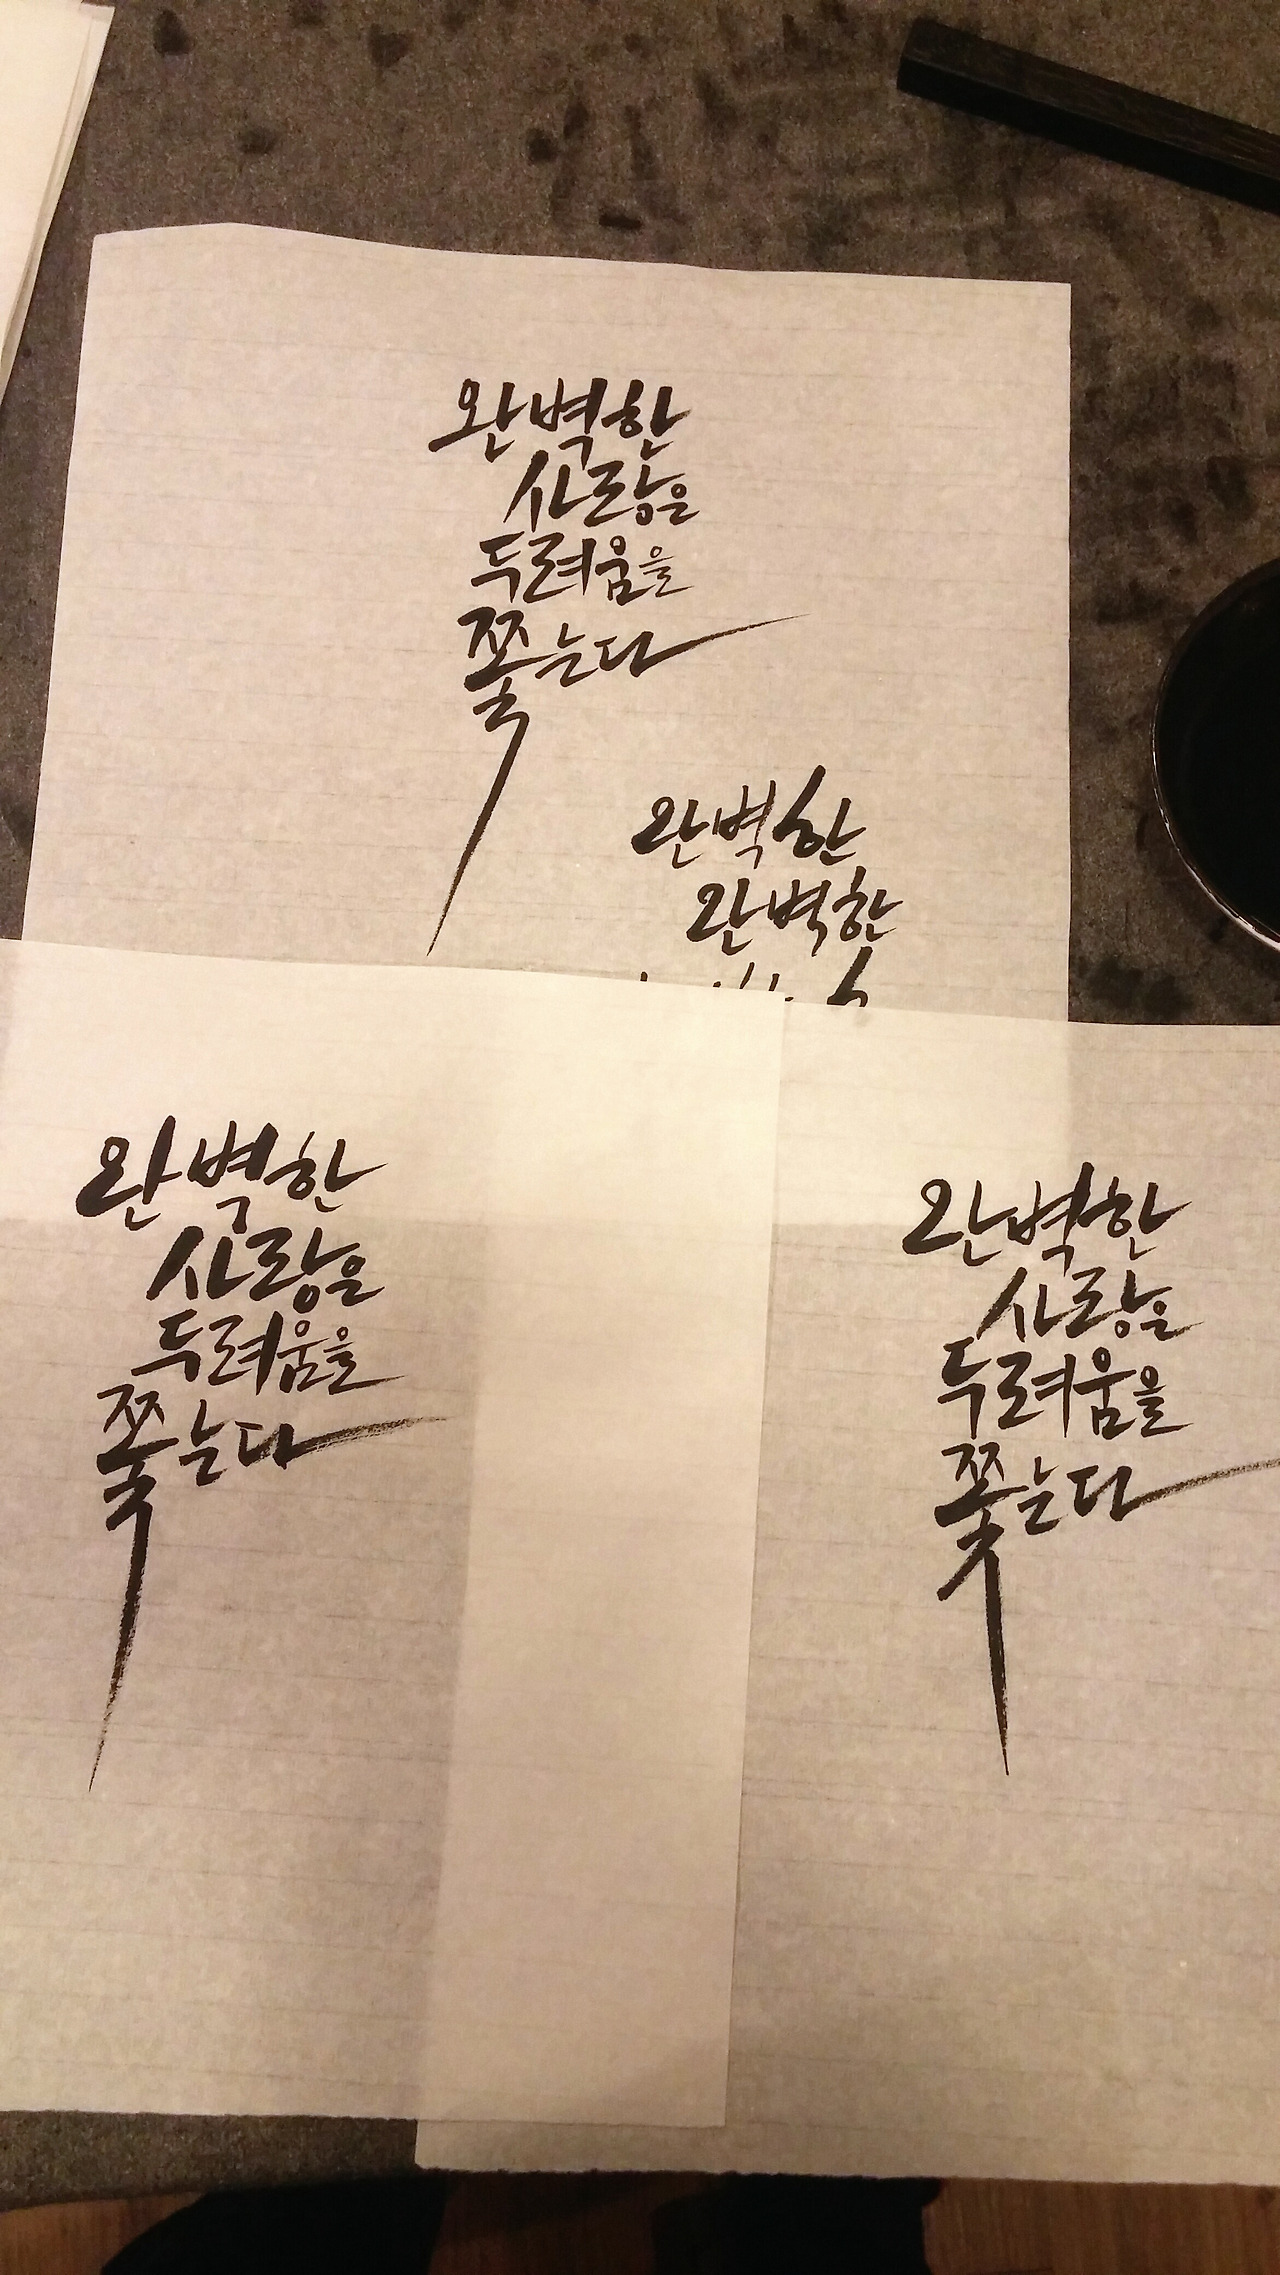 완벽한
사랑은
두려움을
쫓는다
완벽한
완벽한
완벽한
사랑은
두려움을
쫓는다
완벽한
사랑은
두려움을
쫓는다